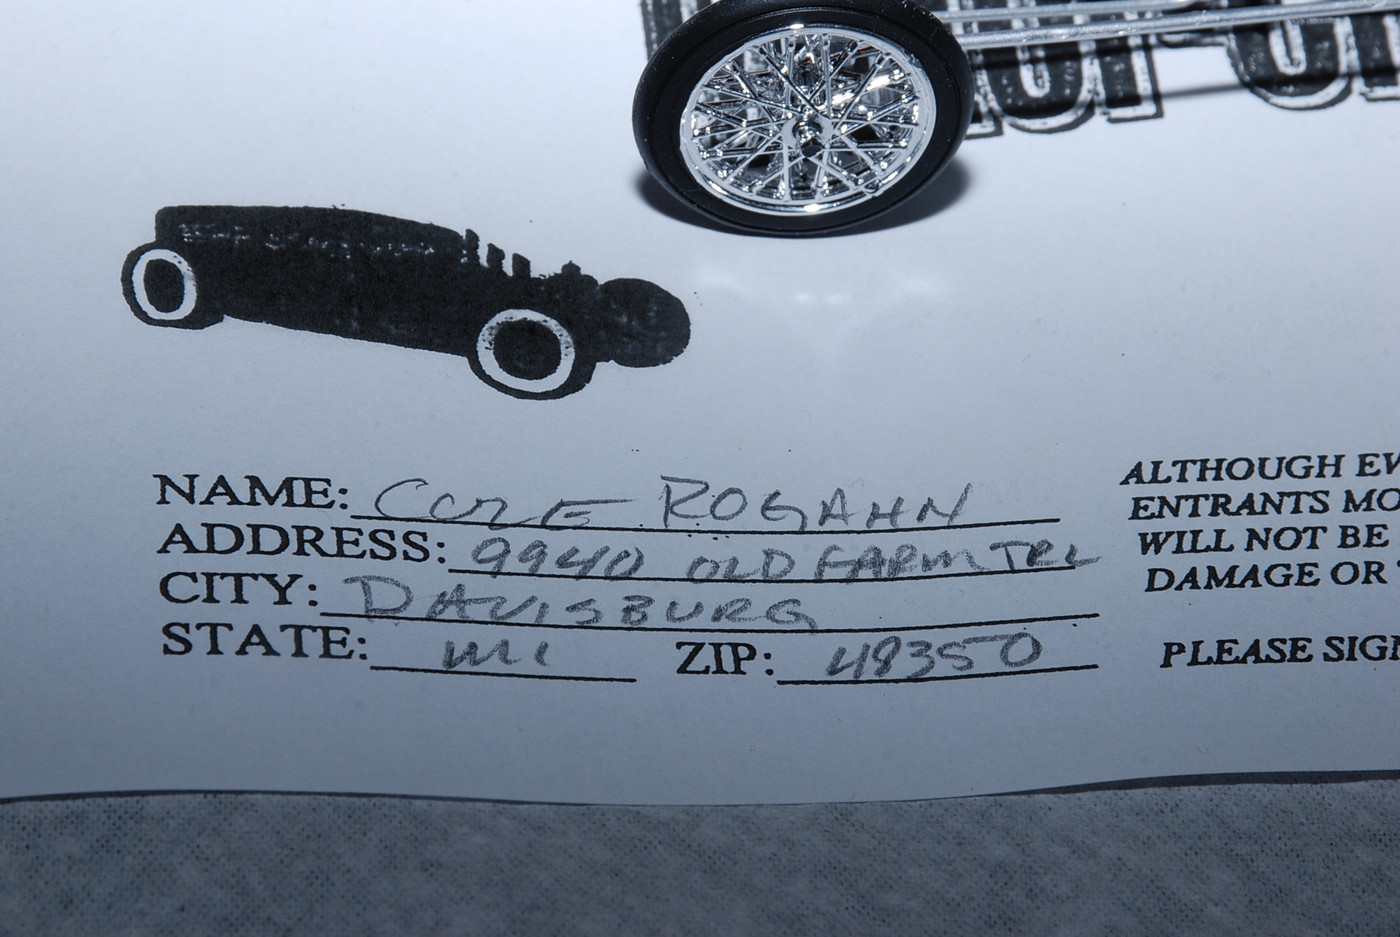 NAME: COLE ROGAHN
ADDRESS: 9940 OLD FARM TRL
CITY: DAVISBURG
STATE: MI ZIP: 48350
ALTHOUGH EV
ENTRANTS MO
WILL NOT BE
DAMAGE OR
PLEASE SIGN